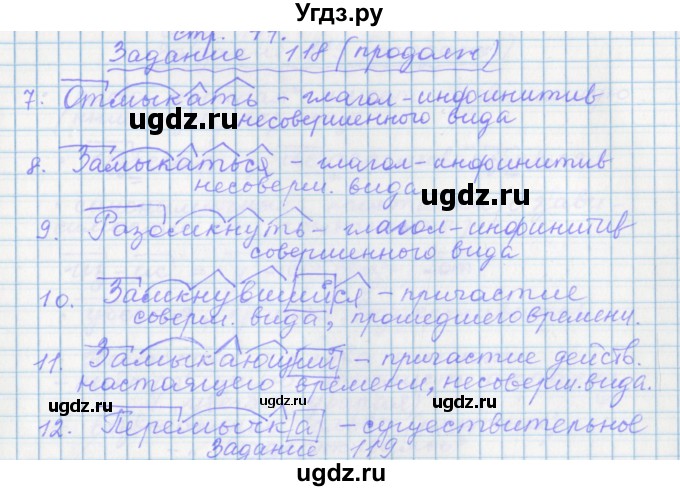 Угдз.ру
стр.
Задание 118 (продолж)
7. Отмыкать - глагол-инфинитив
несовершенного вида
8. Замыкаться - глагол-инфинитив
несоверш. вида
9. Разомкнуть - глагол-инфинитив
совершенного вида
10. Замкнувшийся - причастие
соверш. вида, прошедшего времени.
11. Замыкающий - причастие действ.
настоящего времени, несоверш. вида.
12. Перемычка - существительное
Задание 119
ugdz.ru
ugdz.ru
ugdz.ru
ugdz.ru
ugdz.ru
ugdz.ru
ugdz.ru
ugdz.ru
ugdz.ru